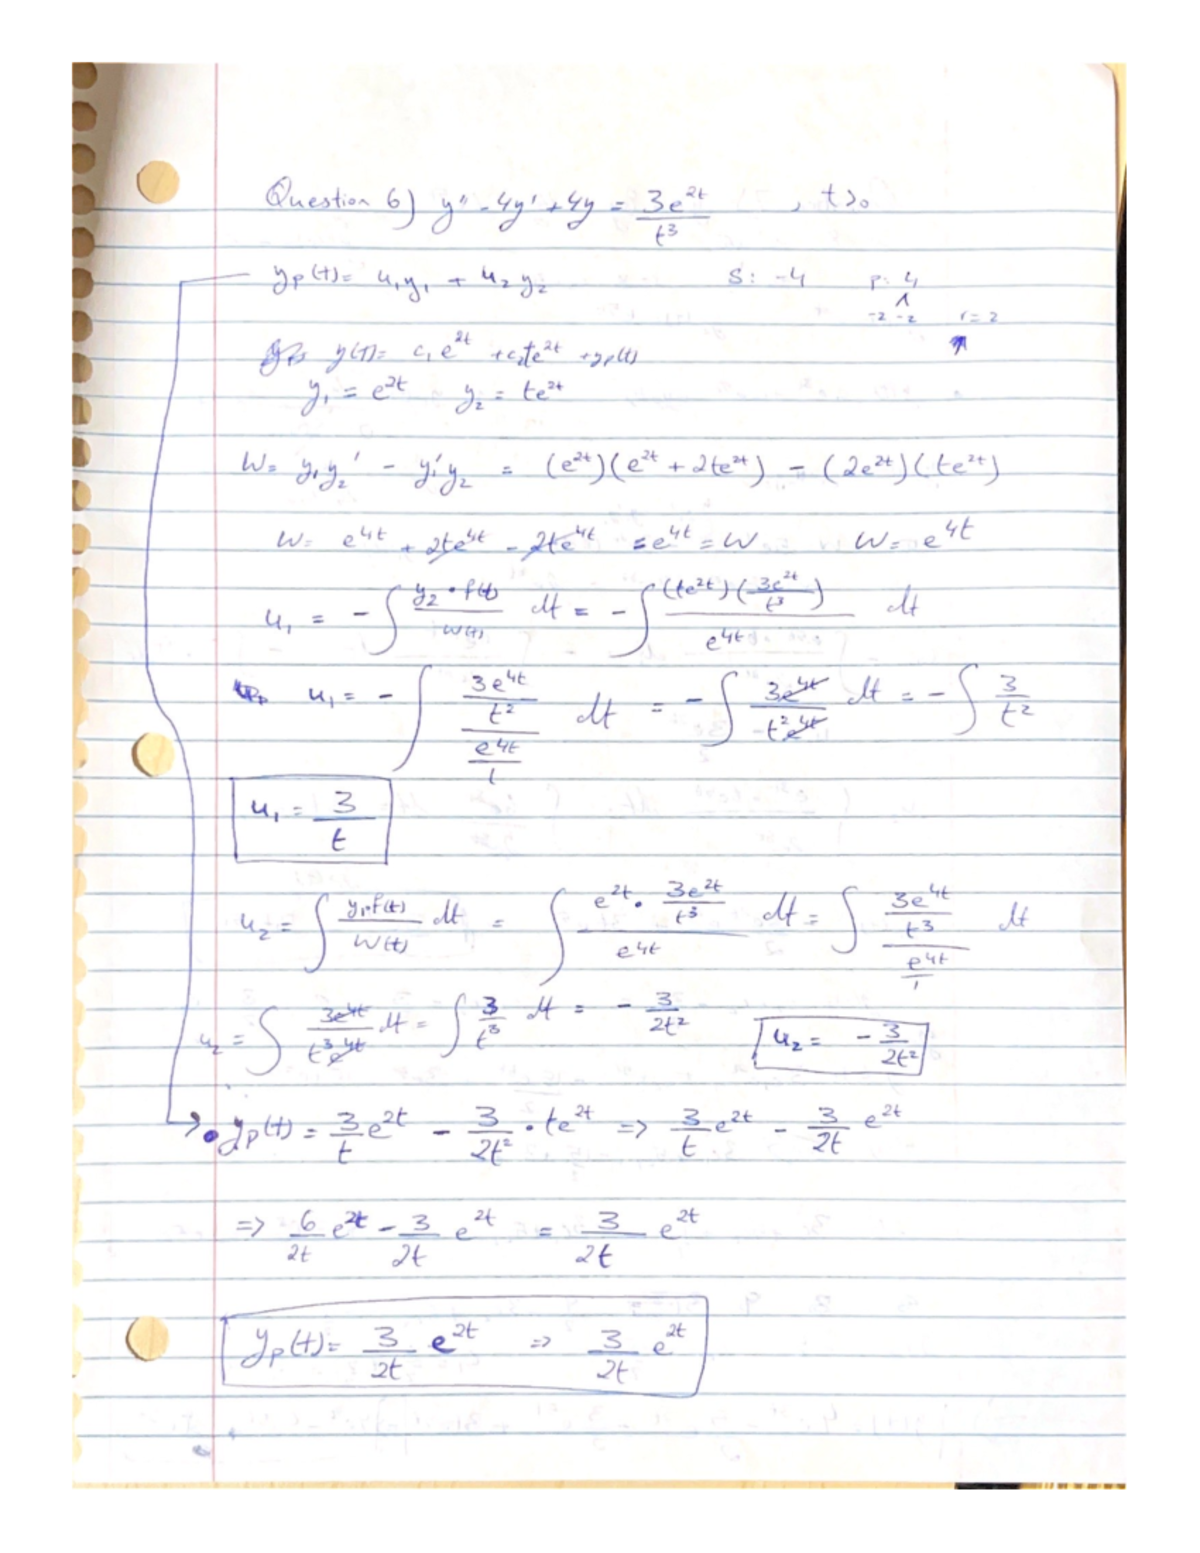 Question 6) y'' - 4y' + 4y = 3e^{2t}/t^3 , t>0
y_p(t) = u_1y_1 + u_2y_2 S: -4 p: 4
-2 -2 r=2
y(t) = c_1e^{2t} + c_2te^{2t} + y_p(t)
y_1 = e^{2t} y_2 = te^{2t}
W = y_1y_2' - y_1'y_2 = (e^{2t})(e^{2t} + 2te^{2t}) - (2e^{2t})(te^{2t})
W = e^{4t} + 2te^{4t} - 2te^{4t} = e^{4t} = W W = e^{4t}
u_1 = -∫ y_2 · f(t)/W(t) dt = -∫ (te^{2t})(3e^{2t}/t^3)/e^{4t} dt
u_1 = -∫ (3e^{4t}/t^2)/(e^{4t}/1) dt = -∫ 3e^{4t}/(t^2e^{4t}) dt = -∫ 3/t^2
u_1 = 3/t
u_2 = ∫ y_1f(t)/W(t) dt = ∫ (e^{2t} · 3e^{2t}/t^3)/e^{4t} dt = ∫ (3e^{4t}/t^3)/(e^{4t}/1) dt
u_2 = ∫ 3e^{4t}/(t^3e^{4t}) dt = ∫ 3/t^3 dt = - 3/2t^2 u_2 = - 3/2t^2
y_p(t) = 3/t e^{2t} - 3/2t^2 · te^{2t} => 3/t e^{2t} - 3/2t e^{2t}
=> 6/2t e^{2t} - 3/2t e^{2t} = 3/2t e^{2t}
y_p(t) = 3/2t e^{2t} => 3/2t e^{2t}